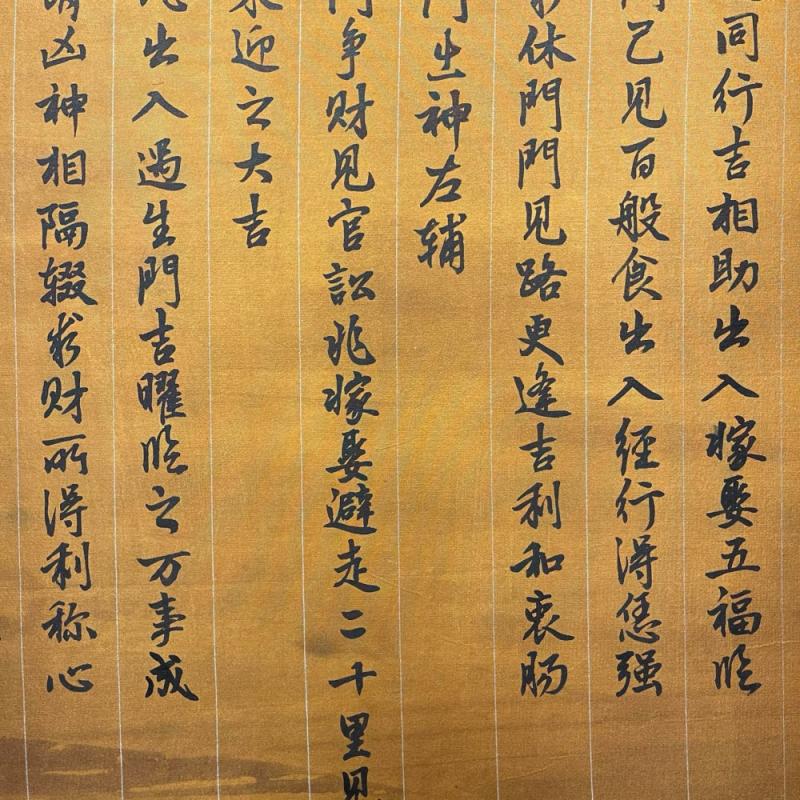 同行吉相助出入嫁娶五福临
己见百般食出入经行得恁强
休門門见路更逢吉利和衷肠
出神左辅
争财见官訟兆嫁娶避走二十里见
迎之大吉
出入過生門吉曜临之万事成
凶神相隔辍求财所得利称心